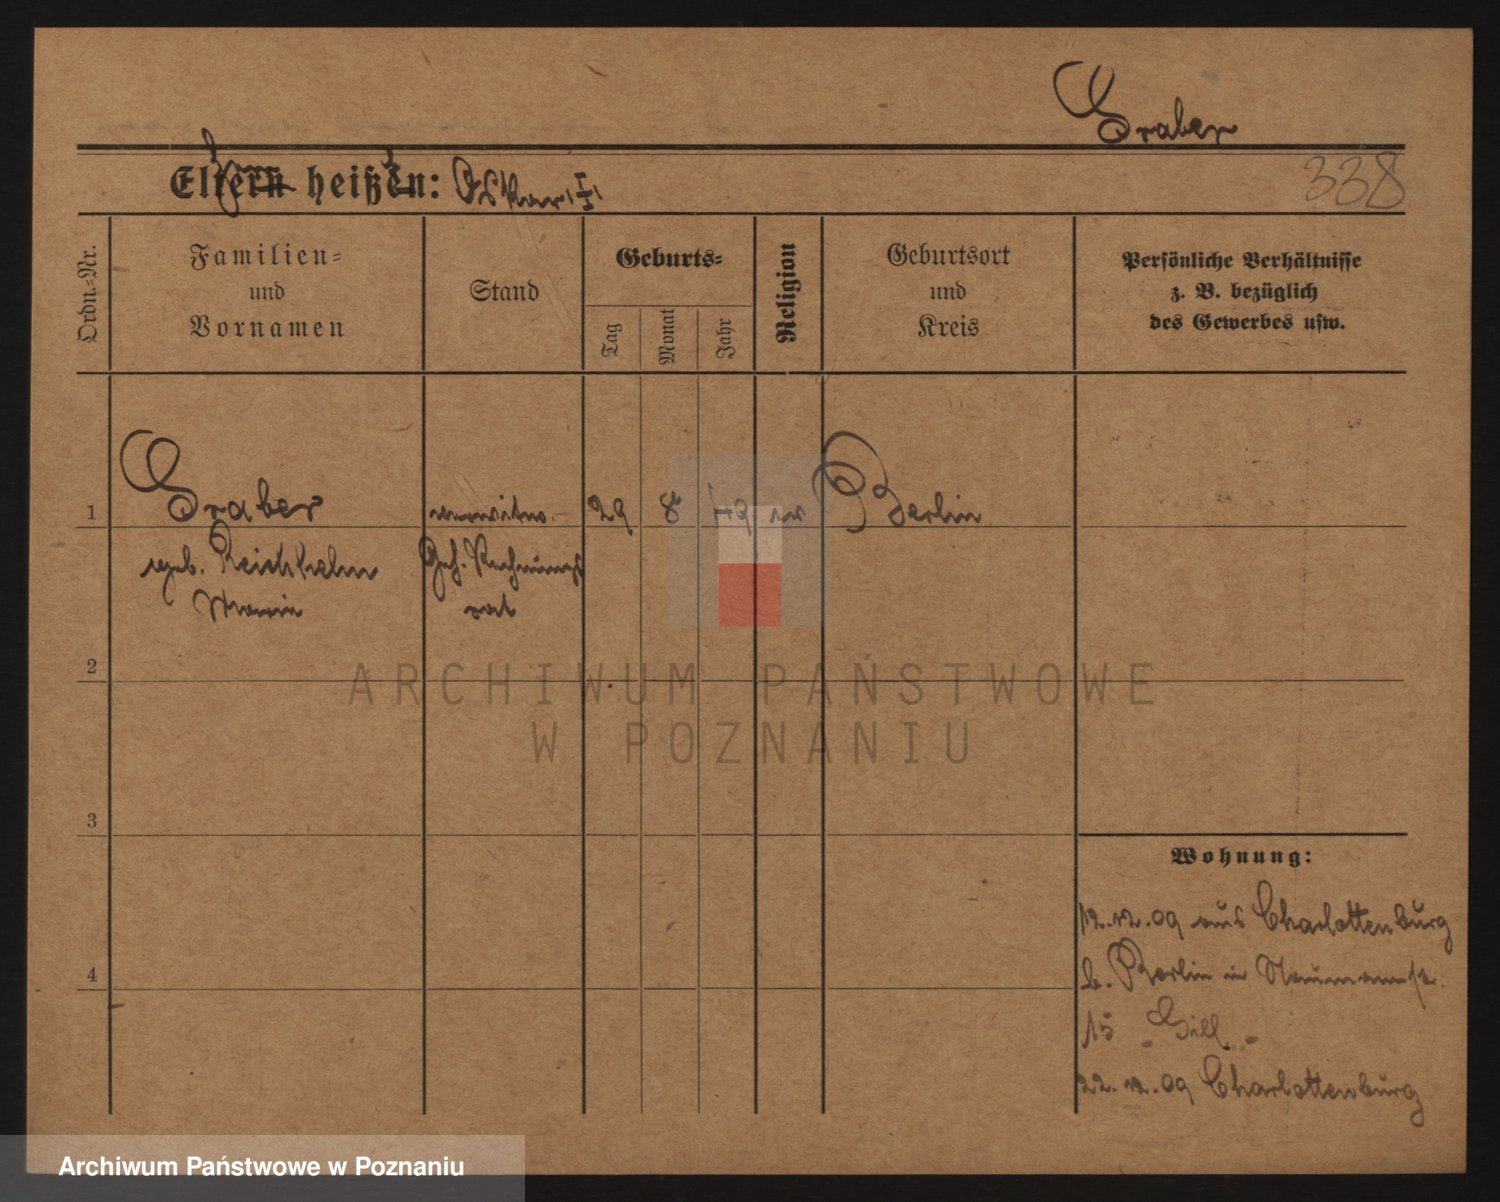 Graber
Eltern heißen: Oskar I
338
Ordn.-Nr.
Familien-
und
Vornamen
Stand
Geburts-
Tag
Monat
Jahr
Religion
Geburtsort
und
Kreis
Persönliche Verhältnisse
z. B. bezüglich
des Gewerbes usw.
1
Graber
geb. Reichhelm
Marie
verwitw.
Geh. Rechnungs
rat
29
8
49
ev
Berlin
2
3
4
Wohnung:
12.12.09 aus Charlottenburg
b. Berlin in Naumannstr.
15
22.12.09 Charlottenburg
ARCHIWUM PAŃSTWOWE
W POZNANIU
Archiwum Państwowe w Poznaniu